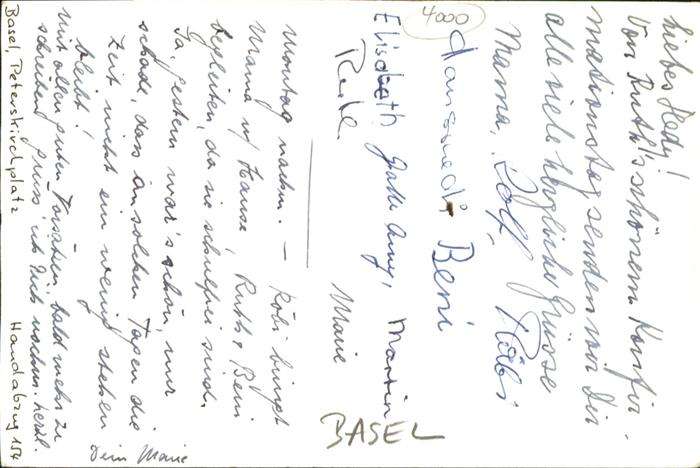 Liebes Hedy!
Von Ruth's schönem Konfir-
mationstag senden wir Dir
alle viele herzliche Grüsse
Mama, Rolf, Röbi
Hansuedi, Beni
Elisabeth Gotte Anny, Martin
Marie
Montag nachm. — Röbi bringt
Mama n/ Hause Ruth & Beni
begleiten, da sie schulfrei sind.
Ja, gestern war's schön, nur
schade, dass an solchen Tagen die
Zeit nicht ein wenig stehen
bleibt!
Mit allen guten Vorsätzen, bald mehr zu
schreiben, grüss ich Dich nochm. herzl.
Dein Marie
Basel, Peterskirchplatz Handabzug 154
4000
BASEL